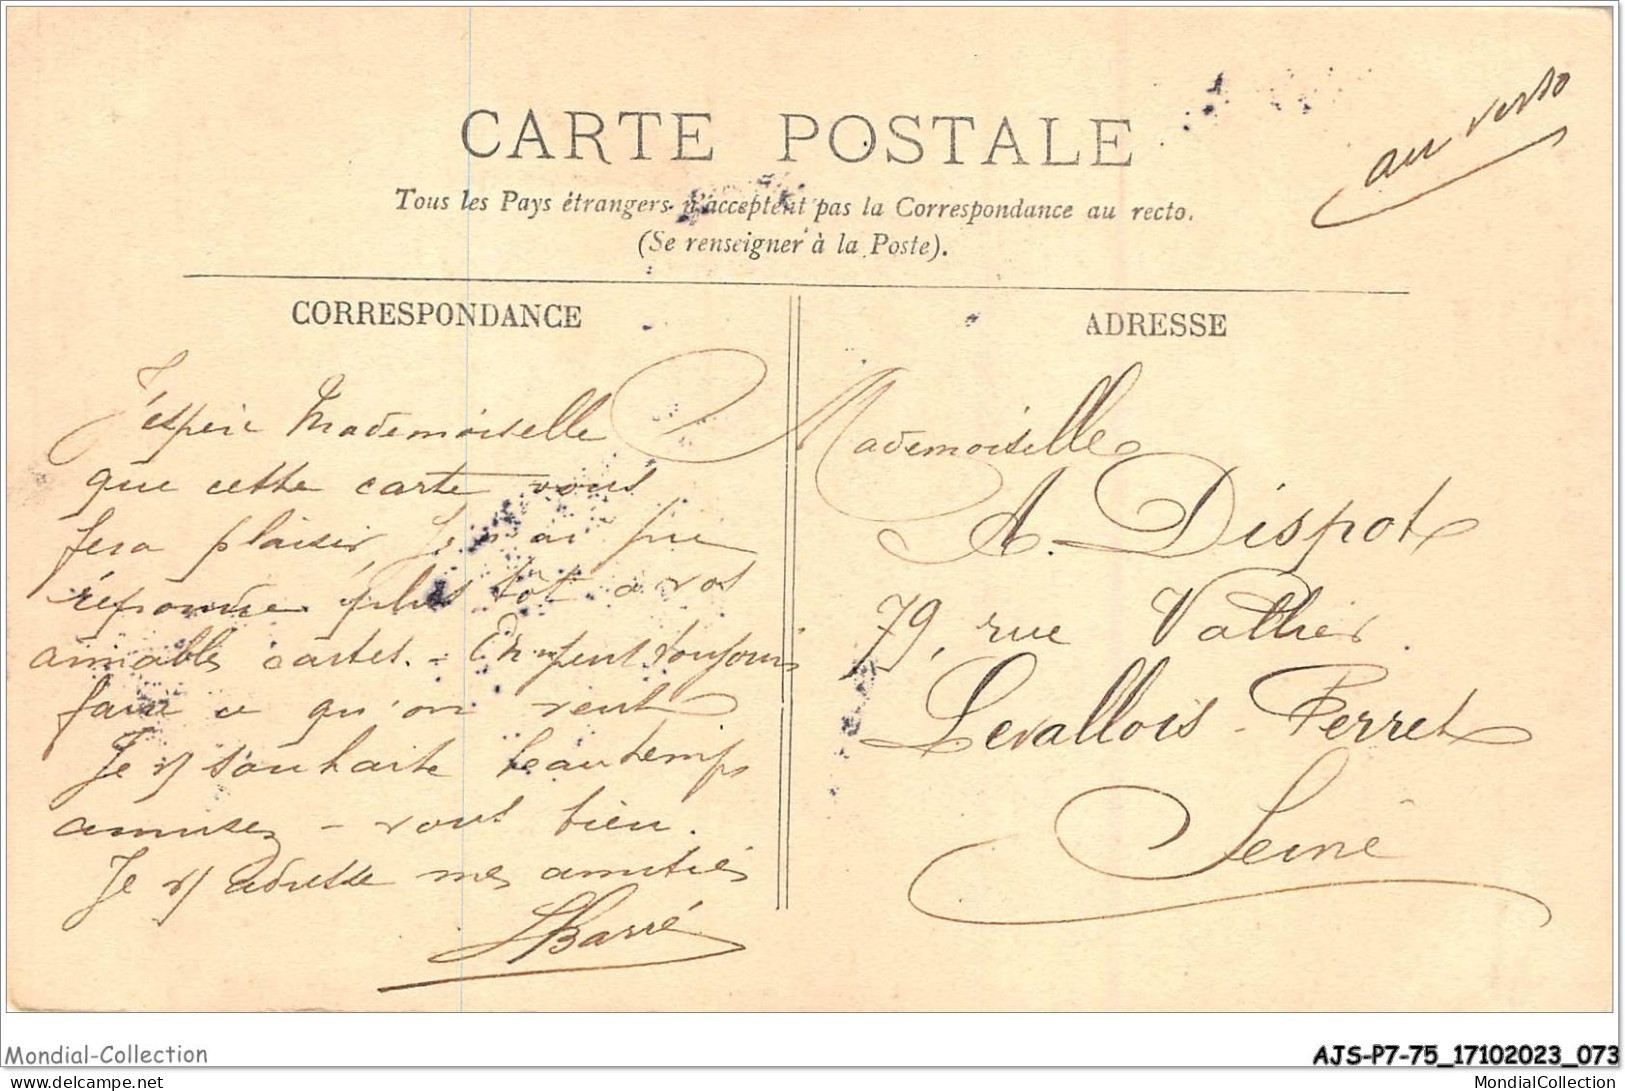 CARTE POSTALE
au verso
Tous les Pays étrangers n'acceptent pas la Correspondance au recto.
(Se renseigner à la Poste).
CORRESPONDANCE
J'espère Mademoiselle
que cette carte vous
fera plaisir, Je n'ai pu
répondre plus tôt à vos
aimables cartes. - On peut toujours
faire ce qu'on veut
Je vs souhaite beau temps
amusez - vous bien.
Je vs adresse mes amitiés
LBarré
ADRESSE
Mademoiselle
A. Dispot
79, rue Vallier.
Levallois - Perret
Seine
Mondial-Collection
AJS-P7-75_17102023_073
delcampe.net
MondialCollection